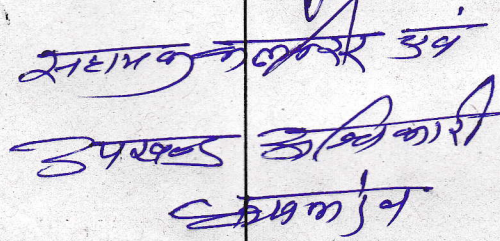 सहायक कलक्टर एवं
उपखण्ड अधिकारी